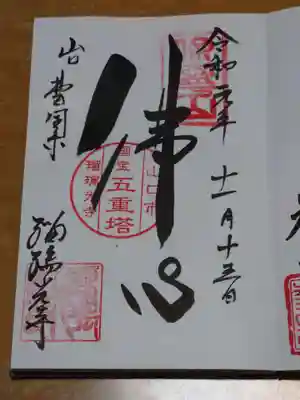 令和元年 十一月十三日
佛心
山口市
国宝
五重塔
瑠璃光寺
香積山
瑠璃光寺